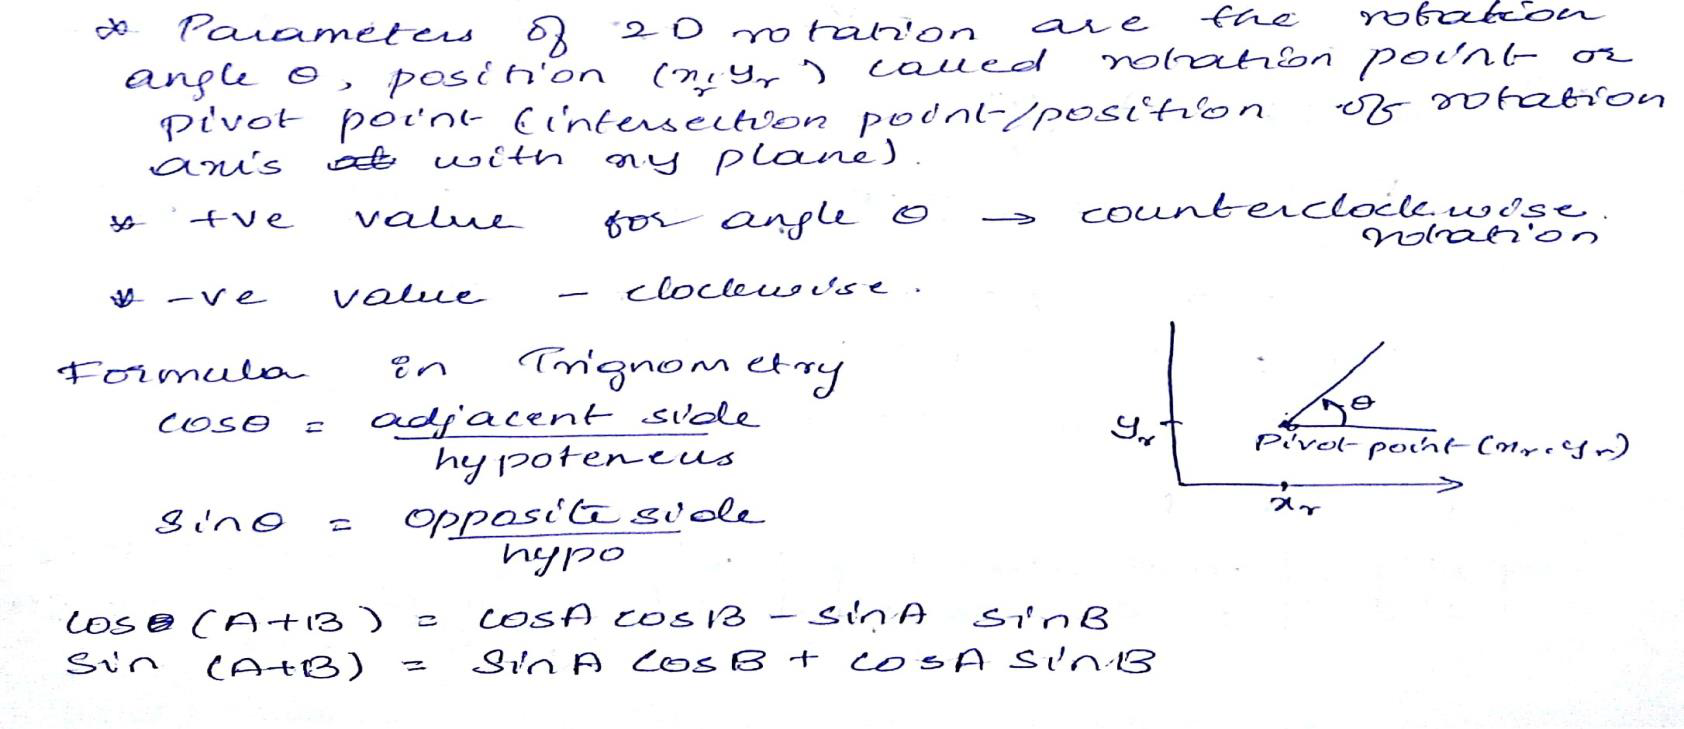 * Parameters of 2D rotation are the rotation
angle θ, position (xr, yr) called rotation point or
pivot point (intersection point/position of rotation
axis with xy plane).
* +ve value for angle θ → counterclockwise.
rotation
* -ve value - clockwise.
Formula in Trignometry
cosθ = adjacent side
hypoteneus
sinθ = opposite side
hypo
cos (A+B) = cosA cosB - sinA sinB
Sin (A+B) = SinA CosB + cosA SinB
θ
yr
Pivot point (xr, yr)
xr